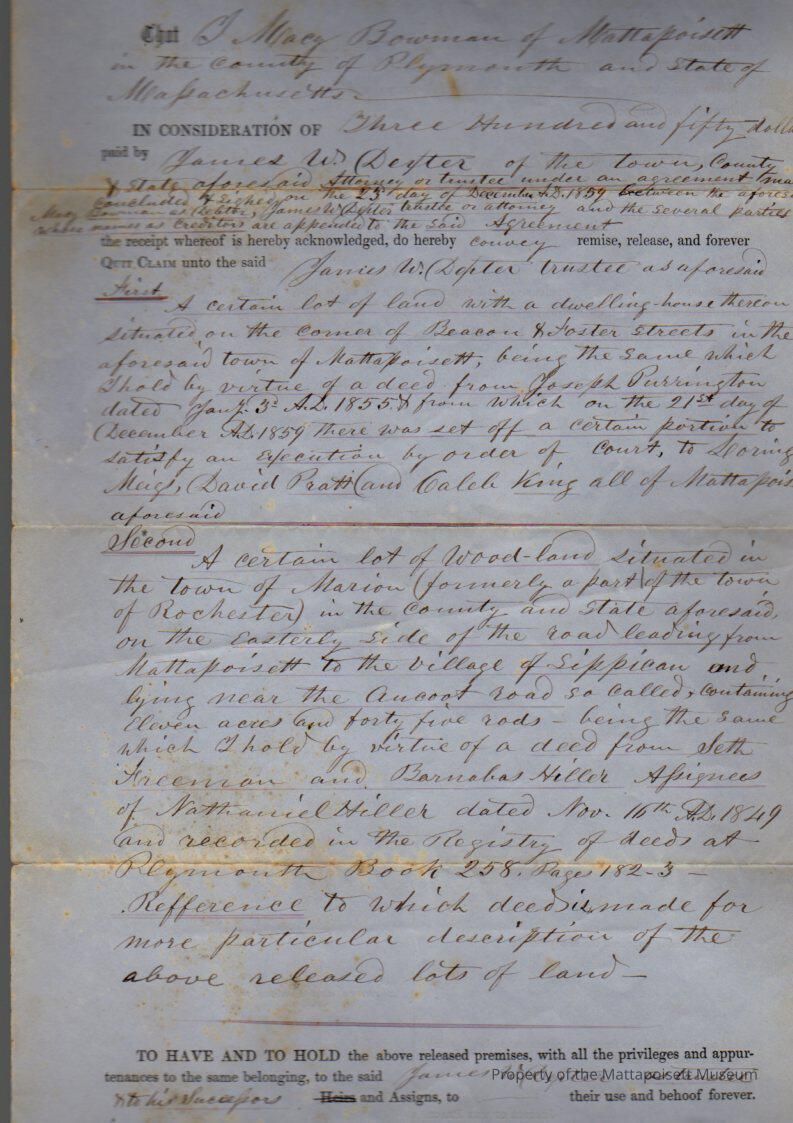 That I Macy Bowman of Mattapoisett
in the County of Plymouth and State of
Massachusetts
IN CONSIDERATION OF Three Hundred and fifty dolla
paid by James W. Dexter of the town, County
& State aforesaid Attorney or trustee under an agreement made
concluded & signed on the 23d day of December A.D. 1859 between the afores
Macy Bowman as Debtor, James W. Dexter trustee or attorney and the several parties
whose names as creditors are appended to the said Agreement
the receipt whereof is hereby acknowledged, do hereby convey remise, release, and forever
QUIT CLAIM unto the said James W. Dexter trustee as aforesaid
First
A certain lot of land with a dwelling-house thereon
situated on the corner of Beacon & Foster streets in the
aforesaid town of Mattapoisett, being the same which
I hold by virtue of a deed from Joseph Purrington
dated Jany. 3d A.D. 1855 & from which on the 21st day of
December A.D. 1859 there was set off a certain portion to
satisfy an execution by order of court, to Loring
Meigs, David Pratt and Caleb King all of Mattapois
aforesaid
Second
A certain lot of Wood-land situated in
the town of Marion (formerly a part of the town
of Rochester) in the county and State aforesaid,
on the Easterly side of the road leading from
Mattapoisett to the village of Sippican and
lying near the Aucoot road so called, containing
Eleven acres and forty five rods – being the same
which I hold by virtue of a deed from Seth
Freeman and Barnabas Hiller Assignees
of Nathaniel Hiller dated Nov. 16th A.D. 1849
and recorded in the Registry of deeds at
Plymouth Book 258. Pages 182-3 –
Refference to which deed is made for
more particular description of the
above released lots of land –
TO HAVE AND TO HOLD the above released premises, with all the privileges and appur-
tenances to the same belonging, to the said James W. trustee
& to his Successors Heirs and Assigns, to their use and behoof forever.
Property of the Mattapoisett Museum